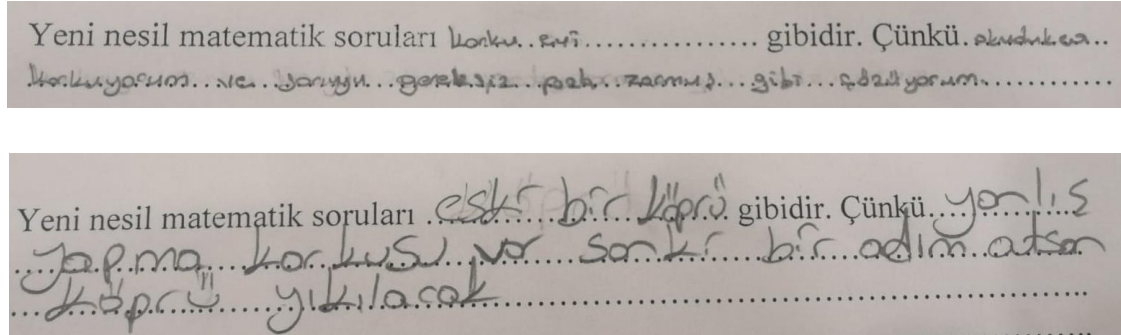 Yeni nesil matematik soruları korku evi................. gibidir. Çünkü. okudukça..
korkuyorum...ve..soruyu...gereksiz...pek..zormuş...gibi...çözüyorum.............
Yeni nesil matematik soruları .eski bir köprü. gibidir. Çünkü....yanlış
....yapma...korkusu var sanki bir adım atsan
..köprü yıkılacak................................................